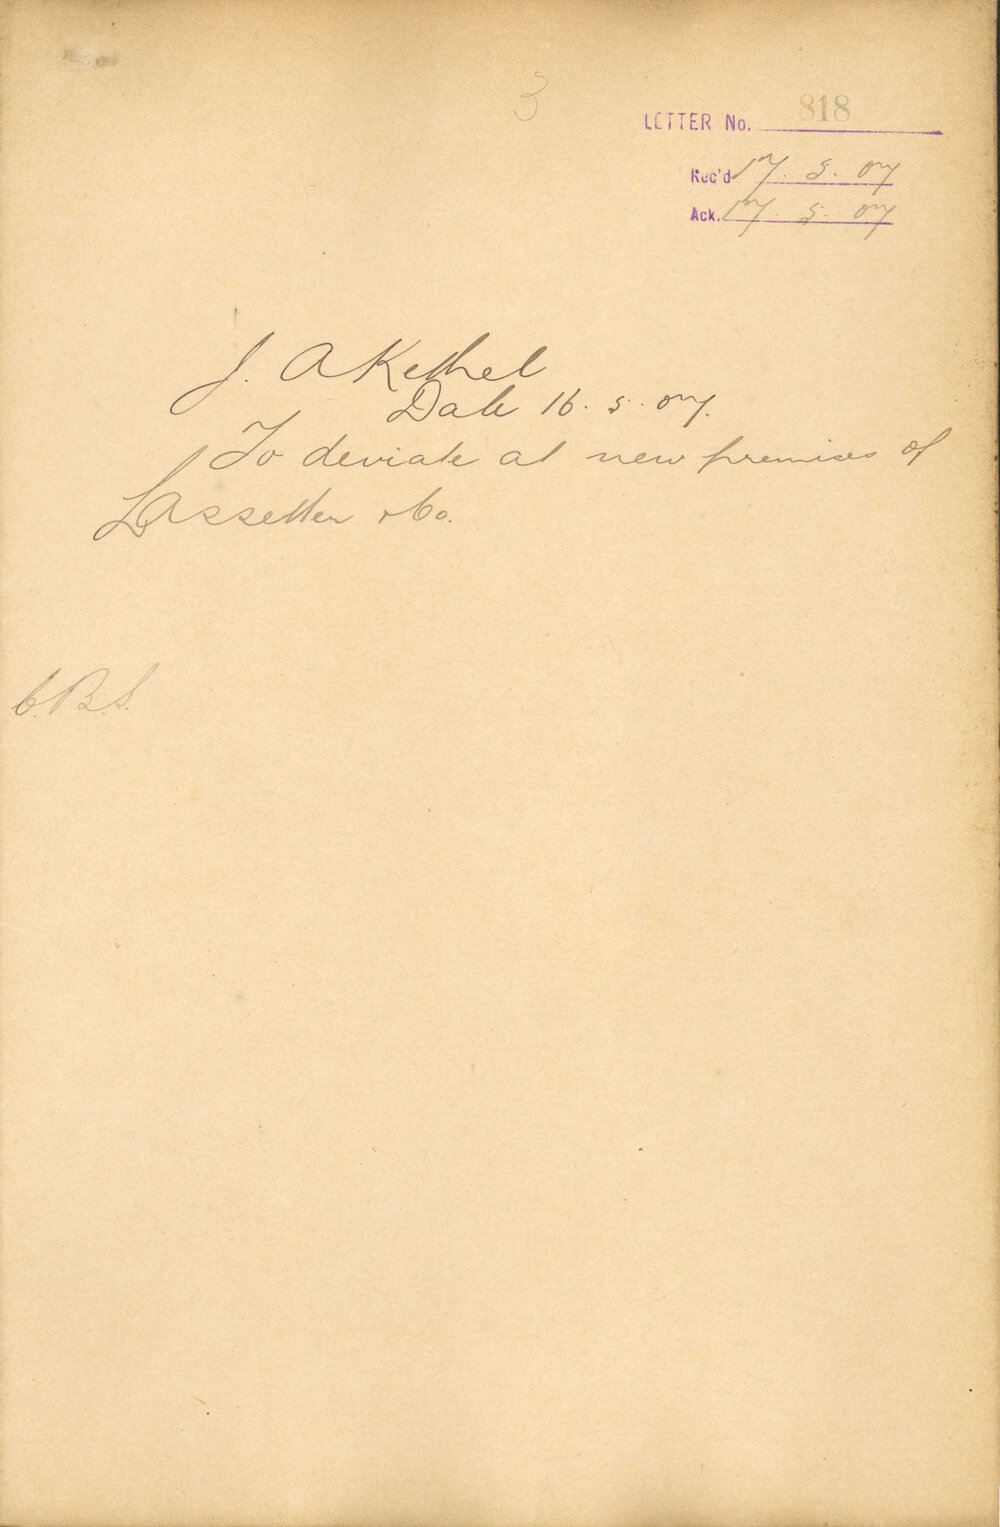 3
LETTER No. 818
Rec'd 17. 5. 07
Ack. 17 5. 07
J. A Kethel
Date 16. 5. 07.
To deviate at new premises of
Lassetter & Co.
C.B.S.